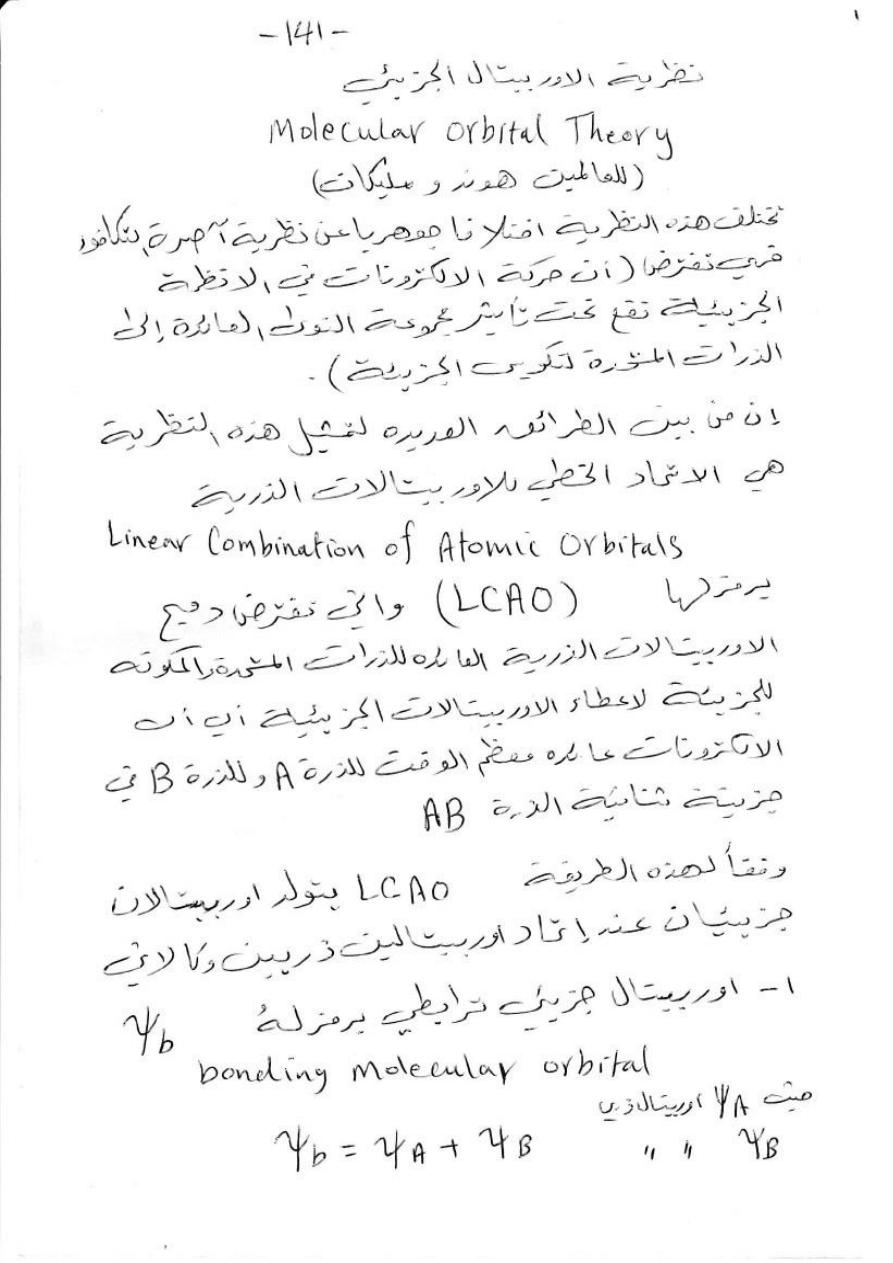 ١
-١٤١-
نظرية الاوربيتال الجزيئي
Molecular orbital Theory
(للعالمين هوند و مليكان)
تختلف هذه النظرية اختلافا جوهريا عن نظرية آصرة التكافؤ
فهي تفترض (أن حركة الالكترونات في الانظمة
الجزيئية تقع تحت تأثير مجموعة النوى العائدة إلى
الذرات المتحدة لتكوين الجزيئة).
إن من بين الطرائق العديده لتمثيل هذه النظرية
هي الاتحاد الخطي للاوربيتالات الذرية
Linear Combination of Atomic Orbitals
يرمز لها (LCAO) والتي تفترض دمج
الاوربيتالات الذرية العائده للذرات المتحدة والمكونه
للجزيئة لاعطاء الاوربيتالات الجزيئية أي أن
الالكترونات عائده معظم الوقت للذرة A وللذرة B في
جزيئة ثنائية الذرة AB
وفقاً لهذه الطريقة LCAO يتولد اوربيتالان
جزيئيان عند إتحاد اوربيتالين ذريين وكالاتي
١- اوربيتال جزيئي ترابطي يرمز لهُ Ψb
bonding molecular orbital
حيث ΨA اوربيتال ذري
Ψb = ΨA + ΨB ΨB " "